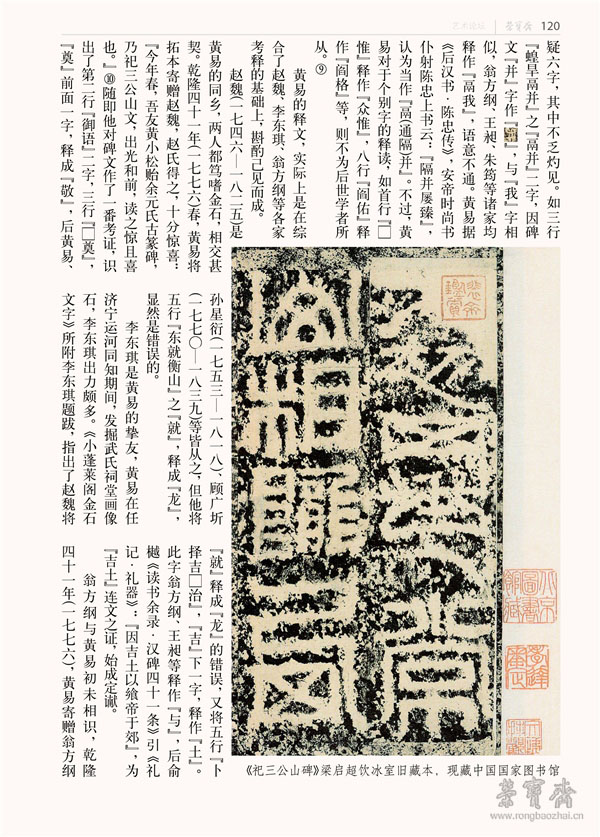 艺术论坛 荣宝斋 120
疑六字，其中不乏灼见。如三行
『蝗旱鬲并』之『鬲并』二字，因碑
文『并』字作『』，与『我』字相
似，翁方纲、王昶、朱筠等诸家均
释作『鬲我』，语意不通。黄易据
《后汉书·陈忠传》，安帝时尚书
仆射陈忠上书云：『隔并屡臻』，
认为当作『鬲（通隔）并』。不过，黄
易对于个别字的释读，如首行『□
惟』释作『众惟』，八行『阎佑』释
作『阎格』等，则不为后世学者所
从。⑨
黄易的释文，实际上是在综
合了赵魏、李东琪、翁方纲等各家
考释的基础上，斟酌己见而成。
赵魏（一七四六—一八二五）是
黄易的同乡，两人都笃嗜金石，相交甚
契。乾隆四十一年（一七七六）春，黄易将
拓本寄赠赵魏，赵氏得之，十分惊喜：
『今年春，吾友黄小松贻余元氏古篆碑，
乃祀三公山文，出光和前，读之惊且喜
也。』⑩随即他对碑文作了一番考证，识
出了第二行『御语』二字，三行『□奠』，
『奠』前面一字，释成『敬』，后黄易、
孙星衍（一七五三—一八一八）、顾广圻
（一七七〇—一八三九）等皆从之，但他将
五行『东就衡山』之『就』，释成『龙』，
显然是错误的。
李东琪是黄易的挚友，黄易在任
济宁运河同知期间，发掘武氏祠堂画像
石，李东琪出力颇多。《小蓬莱阁金石
文字》所附李东琪题跋，指出了赵魏将
『就』释成『龙』的错误，又将五行『卜
择吉□治』，『吉』下一字，释作『土』。
此字翁方纲、王昶等释作『与』，后俞
樾《读书余录·汉碑四十一条》引《礼
记·礼器》：『因吉土以飨帝于郊』，为
『吉土』连文之证，始成定谳。
翁方纲与黄易初未相识，乾隆
四十一年（一七七六），黄易寄赠翁方纲
《祀三公山碑》梁启超饮冰室旧藏本，现藏中国国家图书馆
荣宝斋
www.rongbaozhai.cn